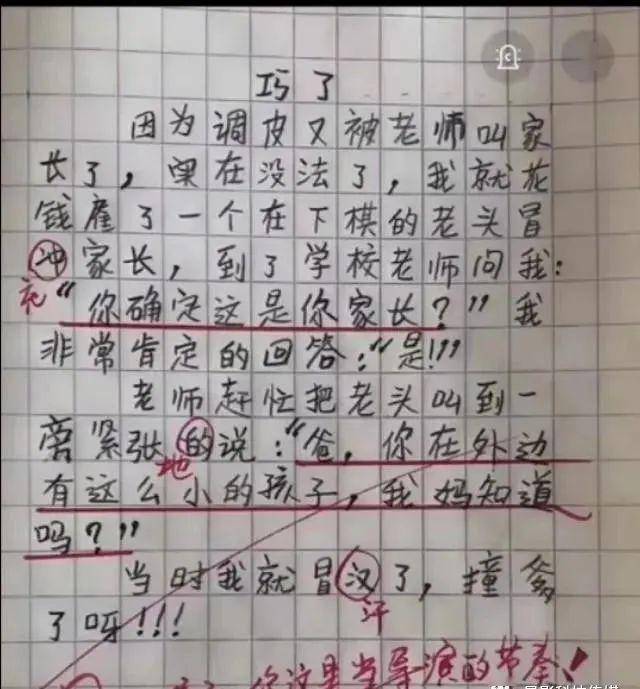 巧了
因为调皮又被老师叫家
长了，果在没法了，我就花
钱雇了一个在下棋的老头冒
冲家长，到了学校老师问我：
充
“你确定这是你家长？”我
非常肯定的回答：“是!!!”
老师赶忙把老头叫到一
旁紧张的说：“爸，你在外边
地
有这么小的孩子，我妈知道
吗？”
当时我就冒汉了，撞爹
汗
了呀!!!
你这是当导演的节奏！